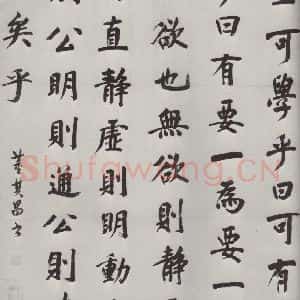 可學乎曰可有
曰有要一為要一
欲也無欲則靜
直靜虛則明動
公明則通公則
矣乎
董其昌書
Shufawang.CN